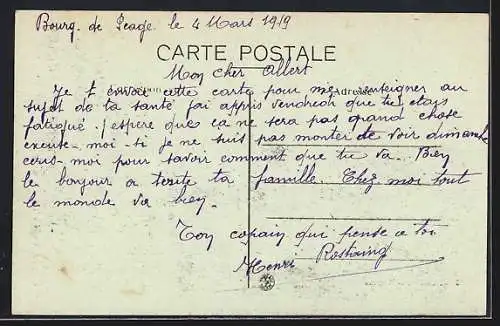 Bourg. de Péage. le 4 Mars 1919
CARTE POSTALE
Mon cher Albert
Je t envoi cette carte pour me renseigner au
Adresse
sujet de ta santé j'ai appris vendredi que tu etais
fatigué. j'espère que ça ne sera pas grand chose
excuse-moi si je ne suis pas monter te voir dimanche
ecris-moi pour savoir comment que tu va. Bien
le bonjour a toute ta famille. Chez moi tout
le monde va bien.
Ton copain qui pense a toi
Henri